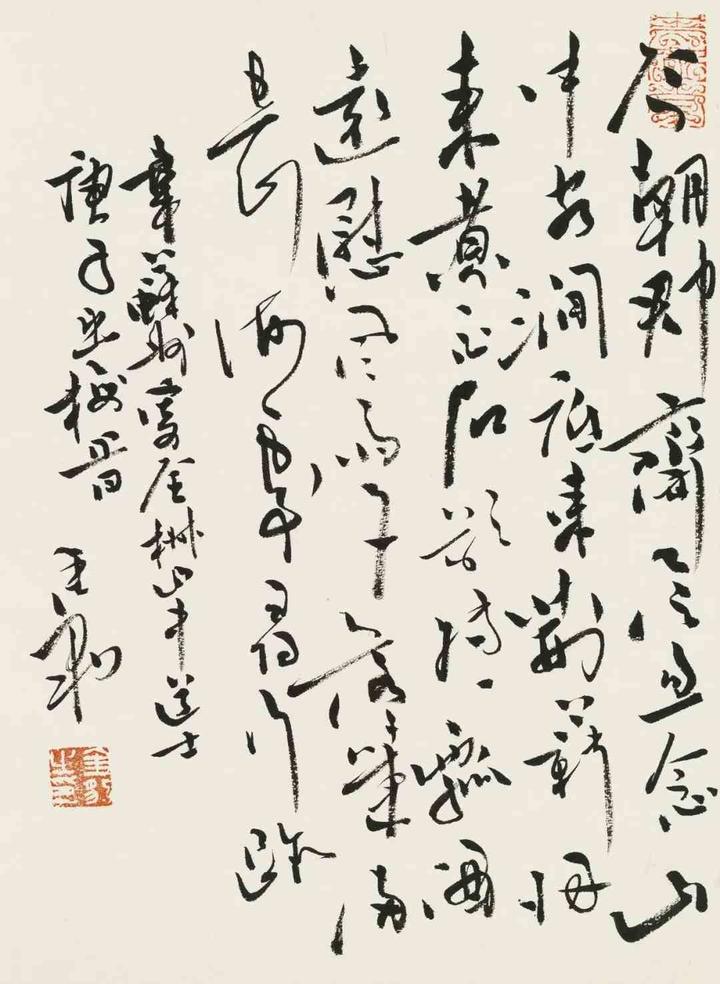 今朝郡齋冷忽念山
中客澗底束荆薪歸
来煮白石欲持一瓢酒
遠慰風雨夕落葉滿
空山何處尋行跡
韋蘇州寄全椒山中道士
庚子 王